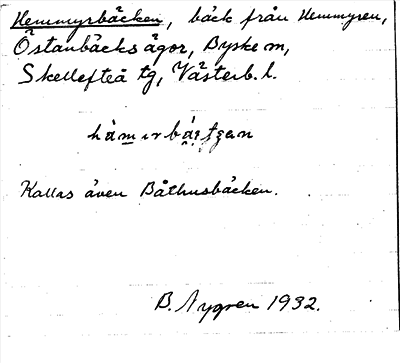 Hemmyrbäcken, bäck från Hemmyren,
Östanbäcks ägor, Byske sn,
Skellefteå tg, Västerb. l.
Kallas även Båthusbäcken.
B. Nygren 1932.